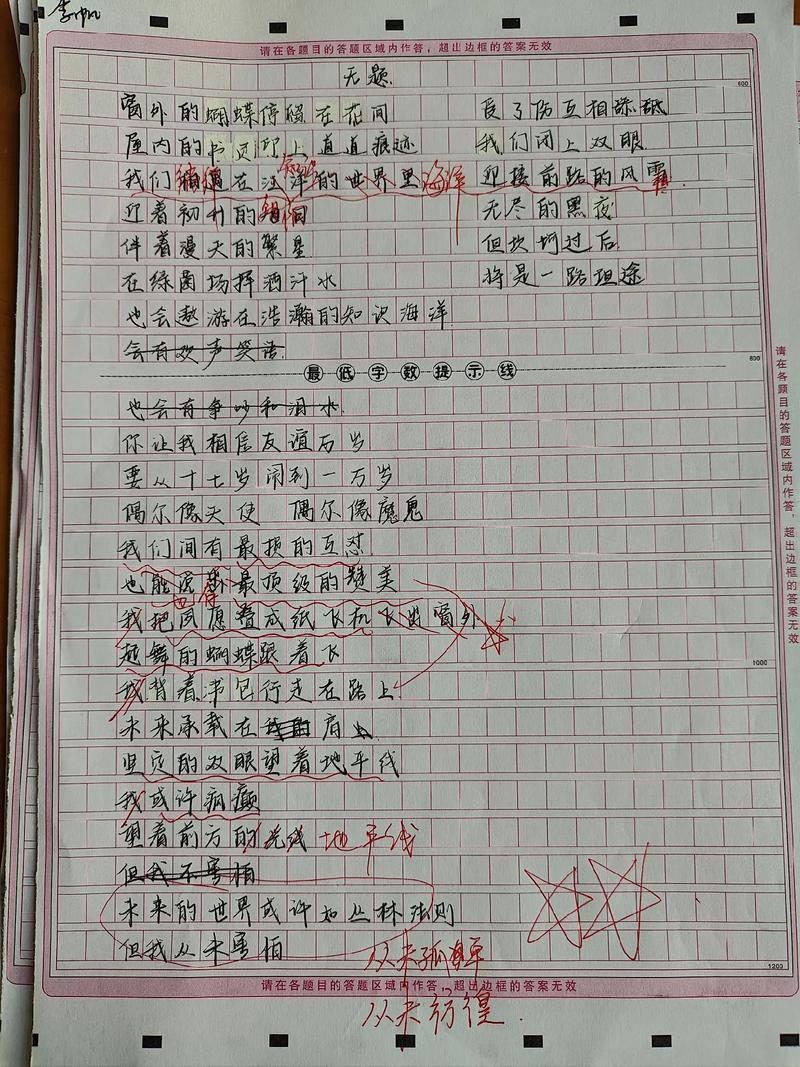 李帆
请在各题目的答题区域内作答，超出边框的答案无效
无题
600
窗外的蝴蝶停留在花间
屋内的书页印上道道痕迹
我们徜徉在汪洋的世界里 海洋
知识
迎着初升的朝阳
伴着漫天的繁星
在绿茵场挥洒汗水
也会遨游在浩瀚的知识海洋
会有欢声笑语
800
最低字数提示线
也会有争吵和泪水
你让我相信友谊万岁
要从十七岁闹到一万岁
偶尔像天使 偶尔像魔鬼
我们间有最损的互怼
也能说最顶级的赞美
也有
我把夙愿叠成纸飞机飞出窗外
起舞的蝴蝶跟着飞
1000
我背着书包行走在路上
未来承载在肩上
坚定的双眼望着地平线
我或许疯癫
望着前方的光线 地平线
但我不害怕
未来的世界或许如丛林法则
但我从未害怕
从未孤单
从未彷徨
1200
受了伤互相舔舐
我们闭上双眼
迎接前路的风霜
无尽的黑夜
但坎坷过后
将是一路坦途
请在各题目的答题区域内作答，超出边框的答案无效
请在各题目的答题区域内作答，超出边框的答案无效